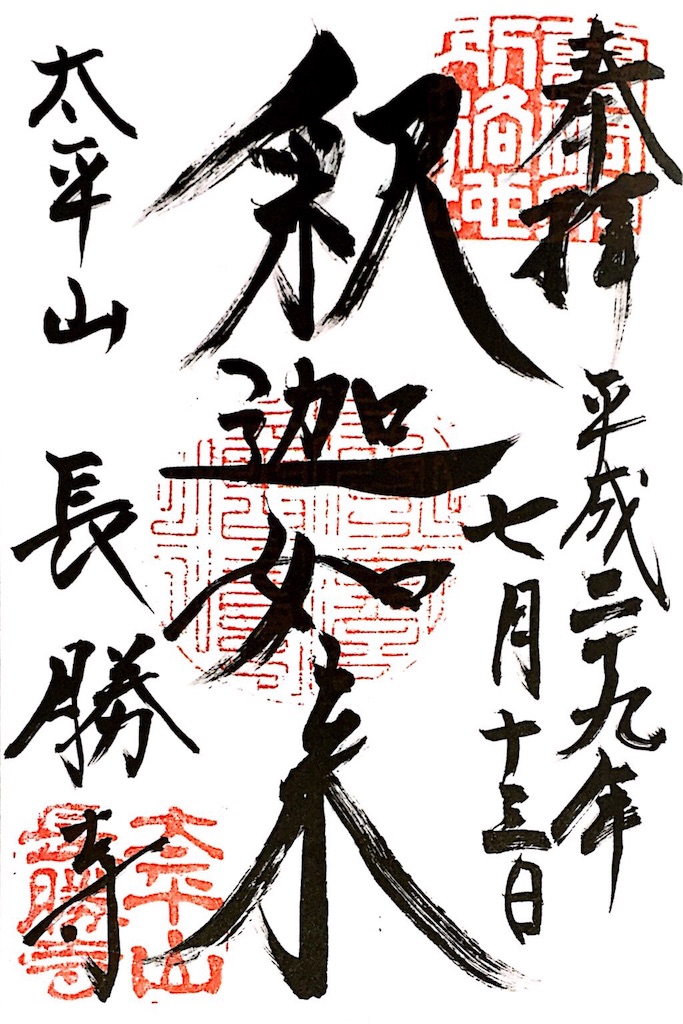 奉拝
平成二十九年
七月十三日
釈迦如来
太平山 長勝寺
太平山
長勝寺